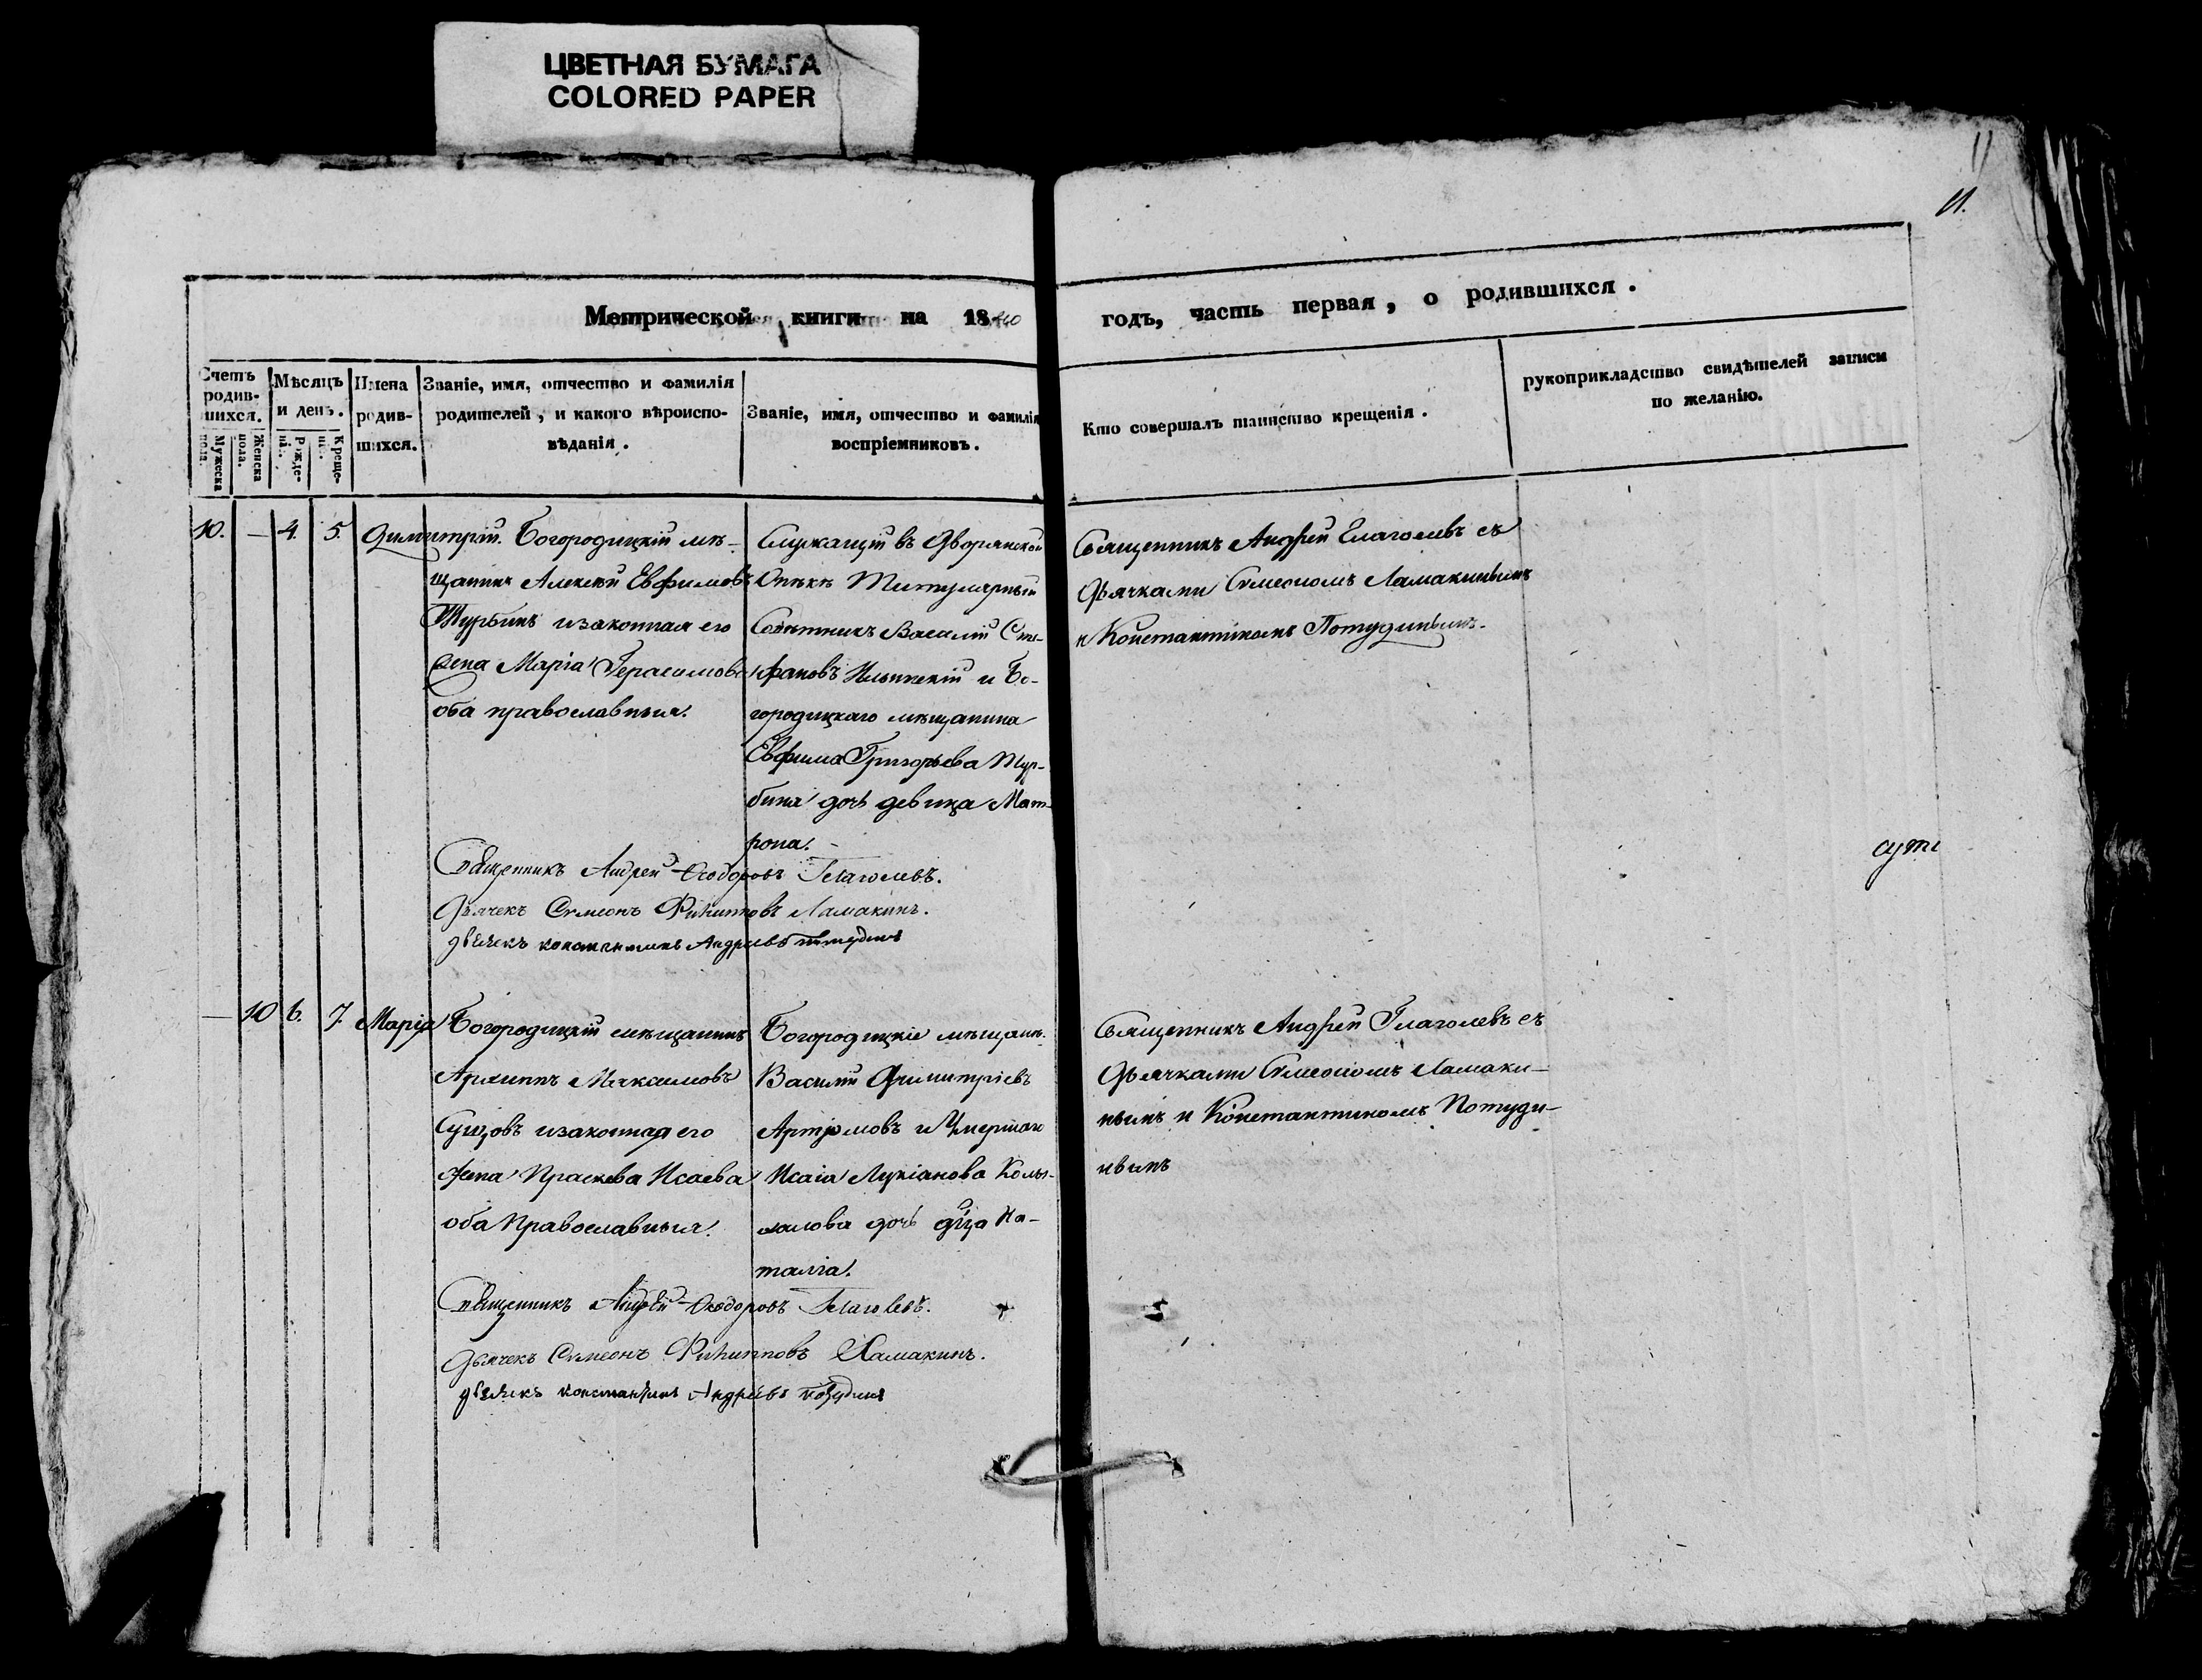 ЦВЕТНАЯ БУМАГА
COLORED PAPER
11
11.
Метрической книги на 1840
годъ, часть первая, о родившихся.
Счетъ родив- шихся.
Мужеска пола.
Женска пола.
Мѣсяцъ и день.
Рожде- нія.
Креще- нія.
Имена родив- шихся.
Званіе, имя, отчество и фамилія
родителей, и какого вѣроиспо-
вѣданія.
Званіе, имя, отчество и фамилія
воспріемниковъ.
Кто совершалъ таинство крещенія.
рукоприкладство свидѣтелей записи
по желанію.
10. — 4. 5. Димитрій.
Богородицкій мѣ-
щанинъ Алексѣй Евфимовъ
Турбинъ изаконная его
жена Марія Герасимова
оба православныя.
Служащій въ Дворянской
Опекѣ Титулярный
Совѣтникъ Василій Сте-
фановъ Ильинскій и Бо-
городицкаго мѣщанина
Евфима Григорьева Тур-
бина дочь девица Мат-
рона.
Священникъ Андрей Глаголевъ съ
Дьячками Симеономъ Ламакинымъ
и Константиномъ Потудинымъ.
Священникъ Андрей Ѳеодоровъ Глаголевъ.
Дьячекъ Симеонъ Филипповъ Ламакинъ.
дьячекъ константинъ Андреевъ потудинъ
— 10 6. 7. Марія
Богородицкій мѣщанинъ
Архиппъ Максимовъ
изаконная его
жена Праскева Исаева
оба Православныя.
Богородицкіе мѣщанѣ.
Василій Димитріевъ
Артюмовъ и Умершаго
Исаіа Лукіанова
дочь дѣца На-
талія.
Священникъ Андрей Глаголевъ съ
Дьячками Симеономъ Ламаки-
нымъ и Константиномъ Потуди-
нымъ
Священникъ Андрей Ѳеодоровъ Глаголевъ.
Дьячекъ Симеонъ Филипповъ Ламакинъ.
дьячекъ константинъ Андреевъ потудинъ